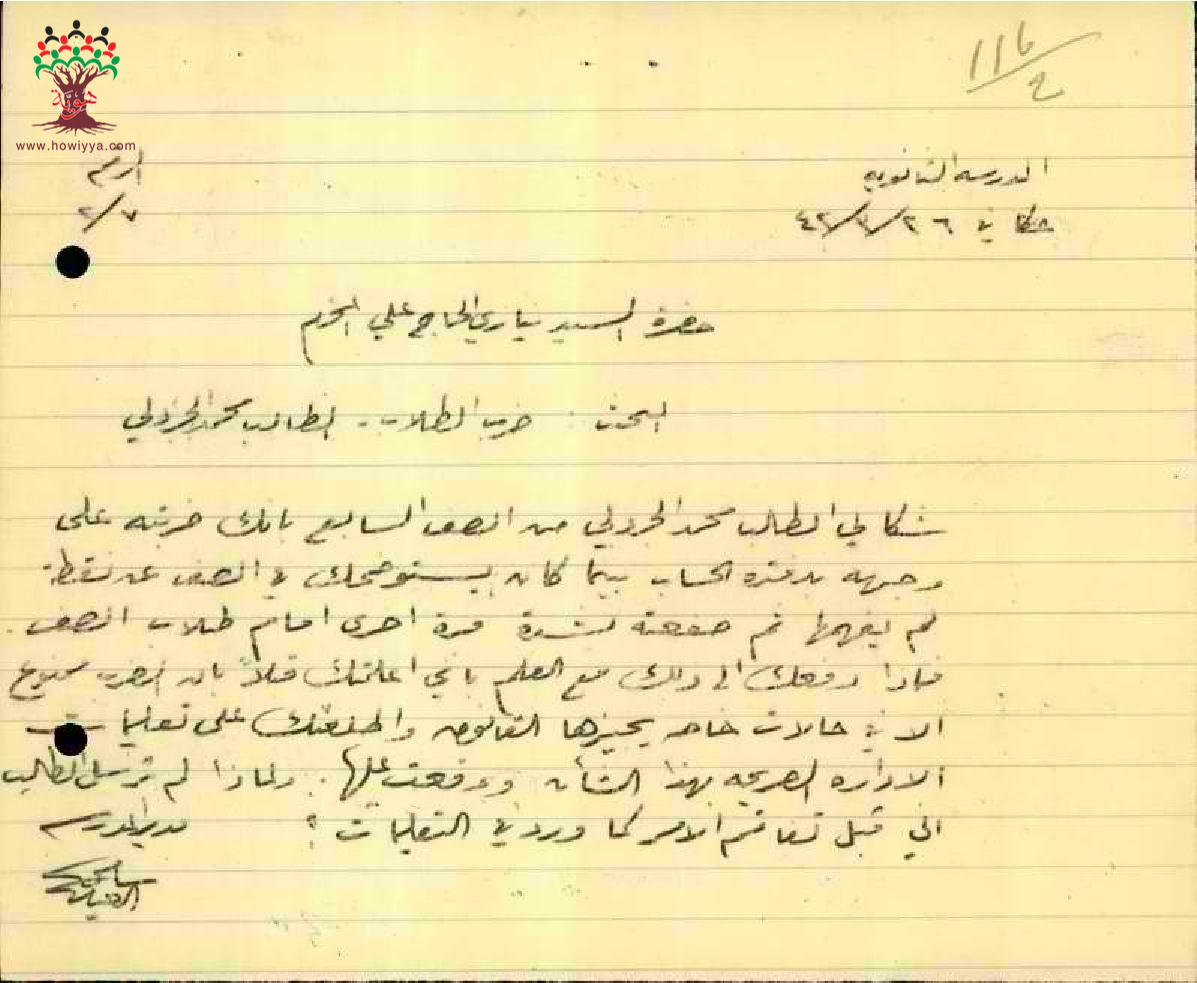 هوية
www.howiyya.com
١١٦/٤
المدرسه الثانويه
عكا في ٢٦/٢/٤٢
٢/٧
حضرة السيد نيازي الحاج علي المحترم
البحث : ضرب الطلاب - الطالب محمد الجردلي
شكا لي الطالب محمد الجردلي من الصف السابع بانك ضربته على
وجهه بدفتره الحساب بينما كان يستوضحك في الصف عن نقطة
لم يفهمها ثم صفعته بشدة مرة اخرى امام طلاب الصف .
فماذا دفعك الى ذلك مع العلم باني اعلمتك قبلاً بان الضرب ممنوع
الا في حالات خاصه يجيزها القانون واطلعتك على تعليمات
الاداره الصريحه بهذا الشأن ووقعت عليها . ولماذا لم ترسل الطالب
الي قبل تفاقم الامر كما ورد في التعليمات ؟ مدير المدرسه